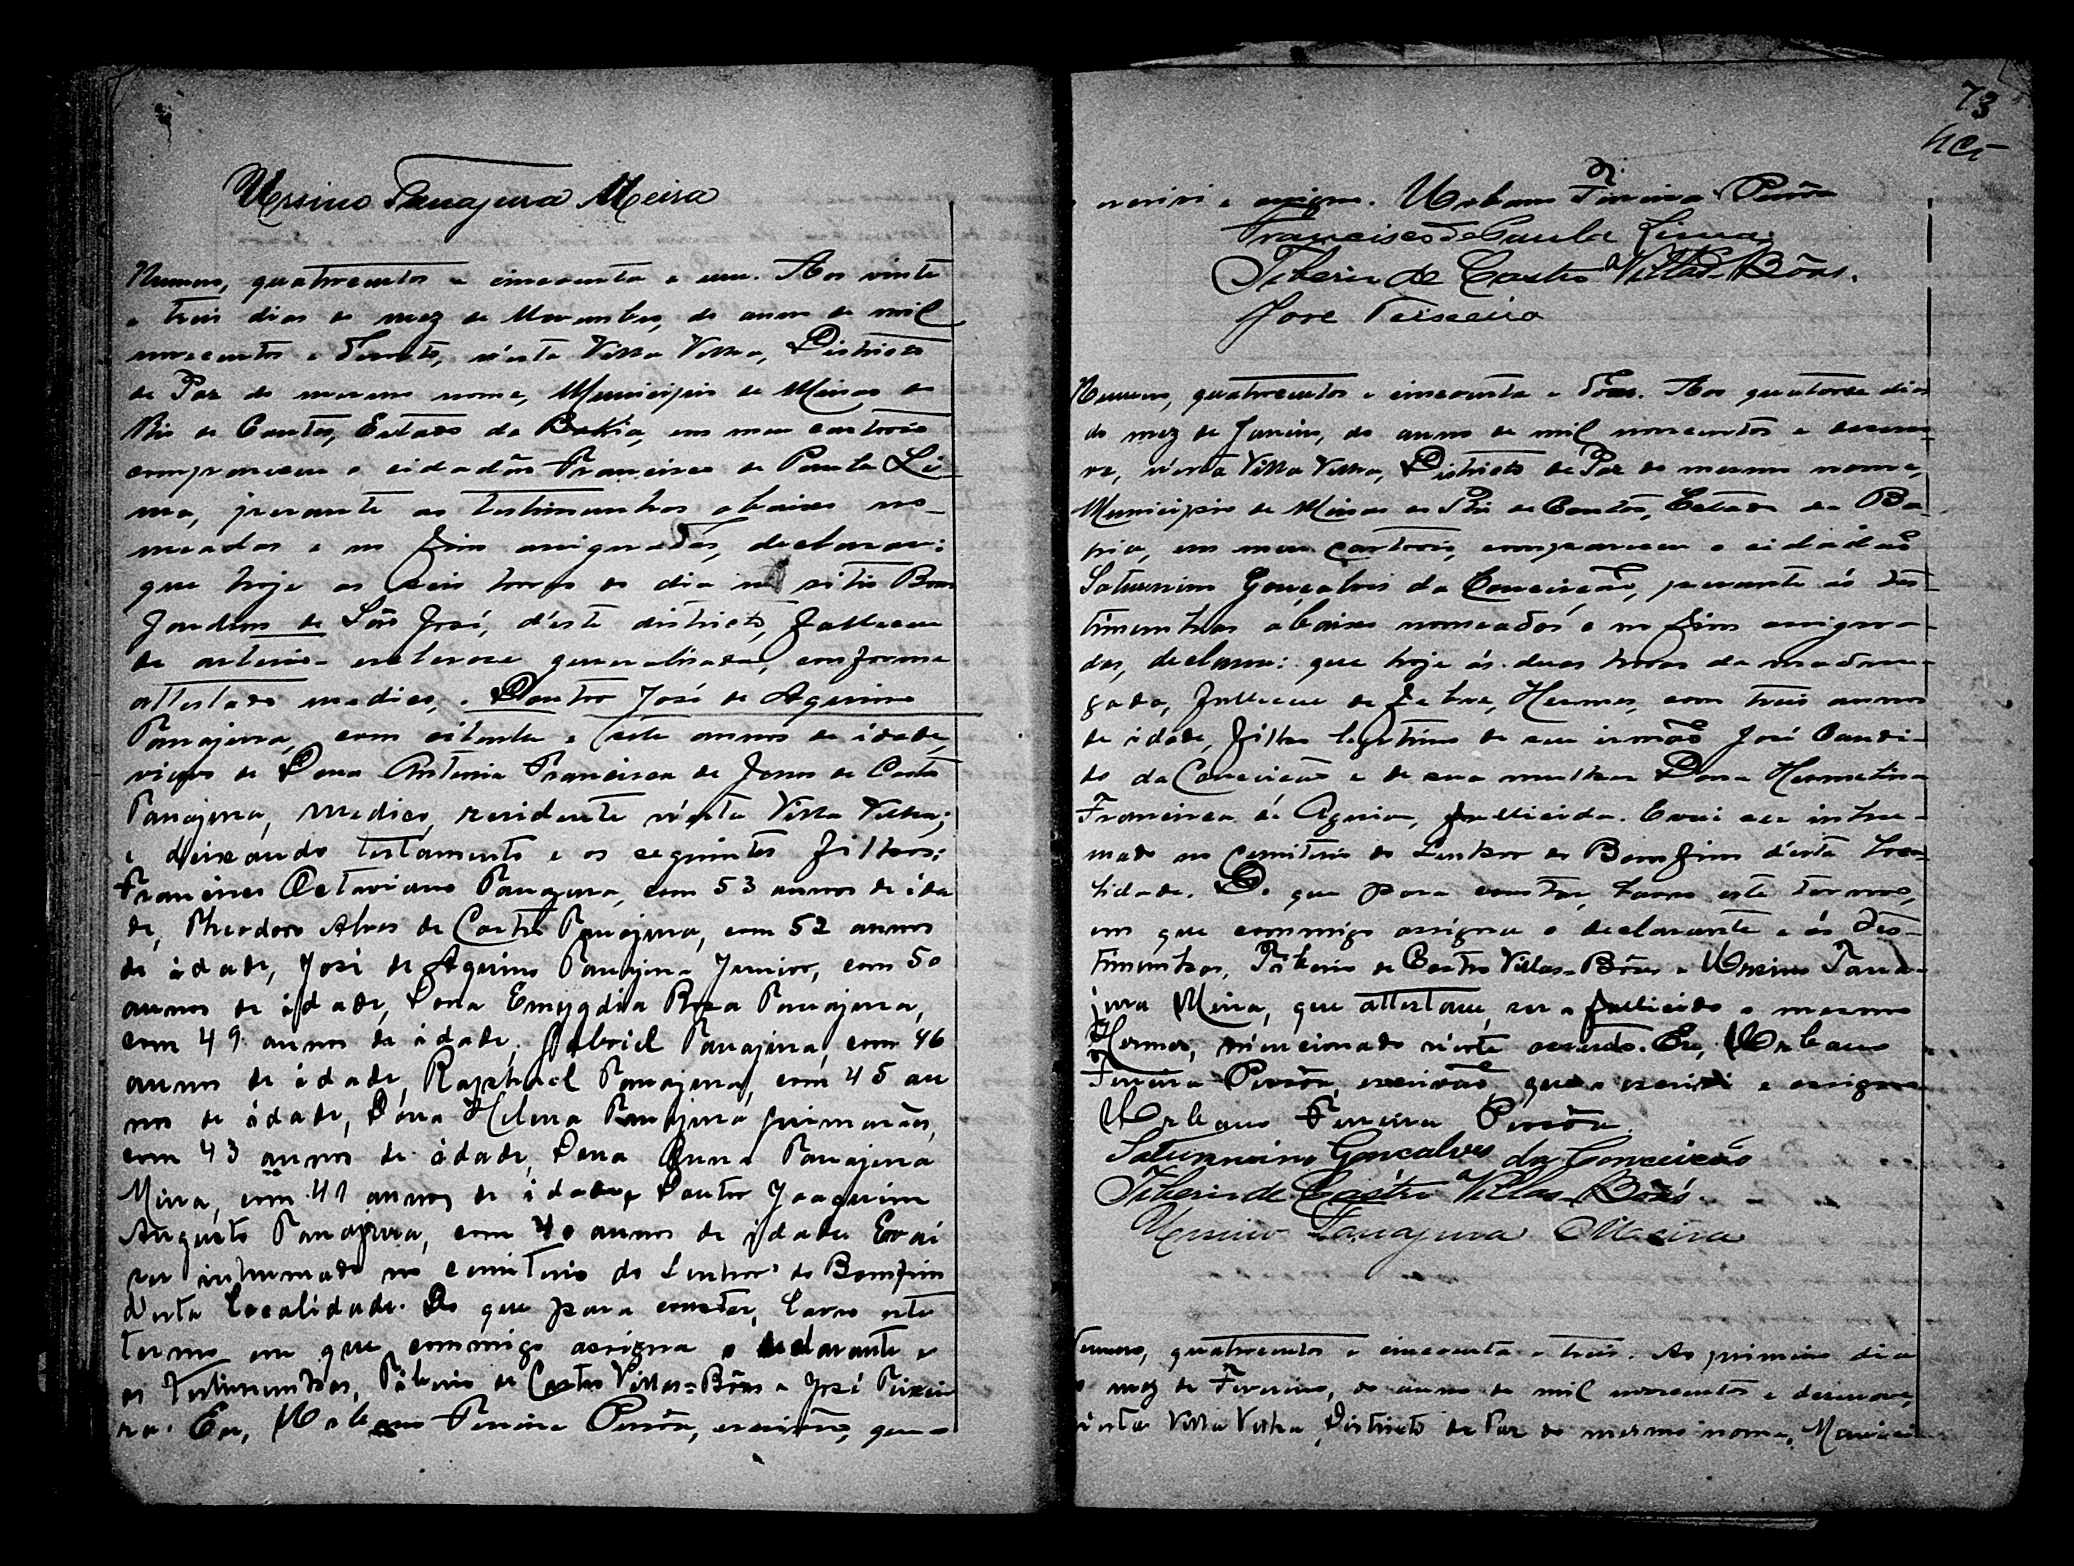 Ursino Tanajura Meira
Numero, quatrocentos e cincoenta e um. Aos vinte
e treis dias do mez de Novembro, do anno de mil
novecentos e dezoito, n'esta Villa Velha, Districto
de Paz do mesmo nome, Municipio de Minas do
Rio de Contas, Estado da Bahia, em meu cartorio
compareceu o cidadão Francisco de Paula Li-
ma, perante as testimunhas abaixo no-
meadas e no fim assignadas, declarou:
que hoje as seis horas do dia no sitio Bom
Jardim de São José, d'este districto, falleceu
de arterio-esclerose generalisada, conforme
attestado medico, o Doutor José de Aquino
Tanajura, com oitenta e sete annos de idade,
viuvo de Dona Antonia Francisca de Jesus de Castro
Tanajura, medico, residente n'esta Villa Velha;
e deixando testamento e os seguintes filhos:
Francisco Octaviano Tanajura, com 53 annos de ida
de, Theodoro Alves de Castro Tanajura, com 52 annos
de idade, José de Aquino Tanajura Junior, com 50
annos de idade, Dona Emygdia Rosa Tanajura,
com 49 annos de idade, Gabriel Tanajura, com 46
annos de idade, Raphael Tanajura, com 45 an
nos de idade, Dona Helena Tanajura Guimarães,
com 43 annos de idade, Dona Anna Tanajura
Meira, com 41 annos de idade, Doutor Joaquim
Augusto Tanajura, com 40 annos de idade. E vai
ser inhumado no cemiterio do Senhor do Bomfim
d'esta localidade. Do que para constar, lavro este
termo em que commigo assigna o declarante e
as testimunhas, Tiberio de Castro Villas-Bôas e José Teixei
ra. Eu, Urbano Ferreira Pessôa, escrivão, que o
73
escrivi e assigno. Urbano Ferreira Pessôa
Francisco de Paula Lima
Tiberio de Castro Villas-Bôas.
José Teixeira
Numero, quatrocentos e cincoenta e dois. Aos quatorze dias
do mez de Janeiro, do anno de mil novecentos e deseno
ve, n'esta Villa Velha, Districto de Paz do mesmo nome,
Municipio de Minas do Rio de Contas, Estado da Ba-
hia, em meu cartorio, compareceu o cidadão
Saturnino Gonçalves da Conceição, perante ás tes
timunhas abaixo nomeadas e no fim assigna-
das, declarou: que hoje ás duas horas da madru-
gada, falleceu de febre, Hermes, com treis annos
de idade, filho legitimo de seu irmão José Candi-
do da Conceição e de sua mulher Dona Hermelina
Francisca de Aguiar, fallecida. E vai ser inhu-
mado no Cemiterio do Senhor do Bomfim d'esta loca
lidade. Do que para constar, lavro este termo,
em que commigo assigna o declarante e ás tes-
timunhas, Tiberio de Castro Villas-Bôas e Ursino Tana-
jura Meira, que attestam, ser o fallecido o mesmo
Hermes, mencionado n'este assento. Eu, Urbano
Ferreira Pessôa, escrivão, que o escrivi e assigno
Urbano Ferreira Pessôa
Saturnino Gonçalves da Conceicão
Tiberio de Castro Villas-Bôas.
Ursino Tanajura Meira
Numero, quatrocentos e cincoenta e treis. Ao primeiro dia
do mez de Fevereiro, do anno de mil novecentos e desenove,
n'esta Villa Velha, Districto de Paz do mesmo nome, Munici